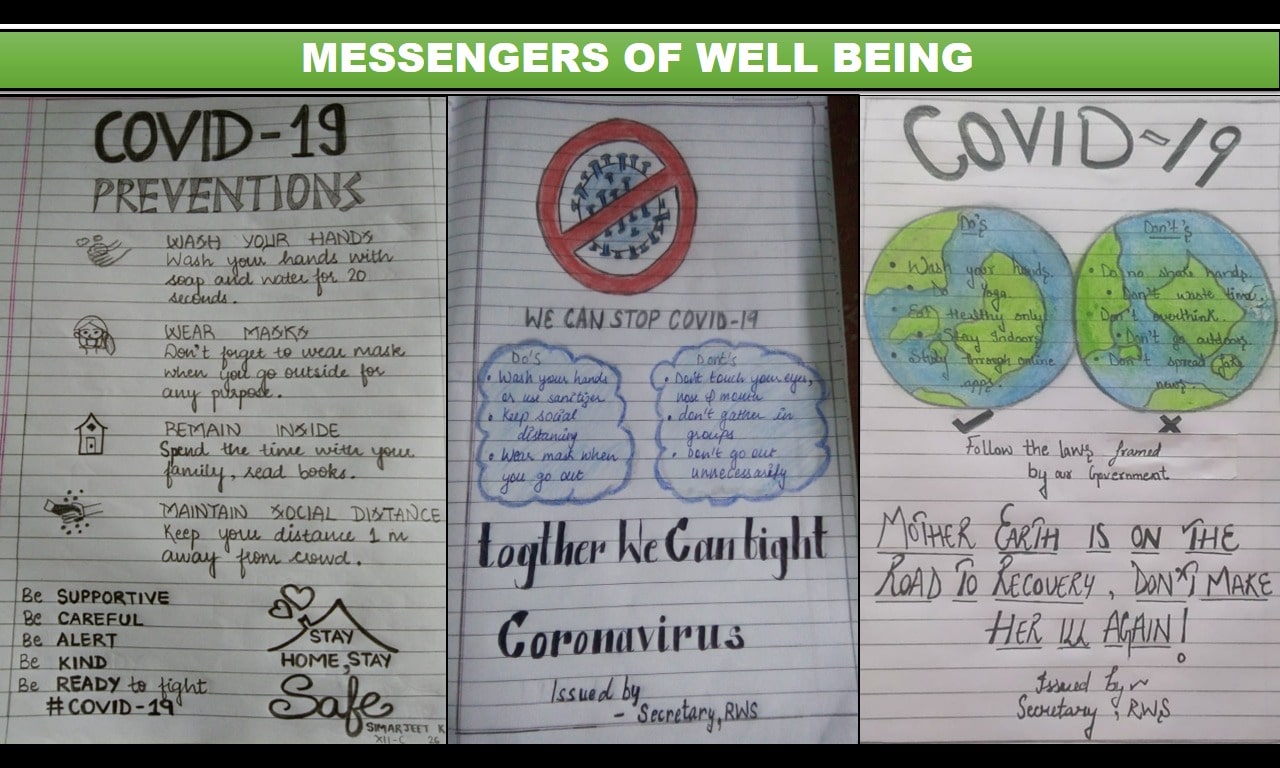 MESSENGERS OF WELL BEING
COVID-19
PREVENTIONS
WASH YOUR HANDS
Wash your hands with
soap and water for 20
seconds.
WEAR MASKS
Don't forget to wear mask
when you go outside for
any purpose.
REMAIN INSIDE
Spend the time with your
family, read books.
MAINTAIN SOCIAL DISTANCE
Keep your distance 1 m
away from crowd.
Be SUPPORTIVE
Be CAREFUL
Be ALERT
Be KIND
Be READY to fight
#COVID-19
STAY
HOME, STAY
Safe
SIMARJEET K
XII-C 26
WE CAN STOP COVID-19
Do'S
• Wash your hands
or use sanitizer
• Keep social
distancing
• Wear mask when
you go out
Dont's
• Don't touch your eyes,
nose & mouth
• don't gather in
groups
• Don't go out
unnecessarily
togther We Can fight
Coronavirus
Issued by
- Secretary, RWS
COVID-19
Do's
• Wash your hands.
• Do Yoga.
• Eat Healthy only
• Stay Indoors
• Study through online
apps.
Don't's
• Do no shake hands.
• Don't waste time.
• Don't overthink.
• Don't go outdoors.
• Don't spread fake
news.
Follow the laws framed
by our Government
MOTHER EARTH IS ON THE
ROAD TO RECOVERY, DON'T MAKE
HER ILL AGAIN!
Issued by ~
Secretary, RWS